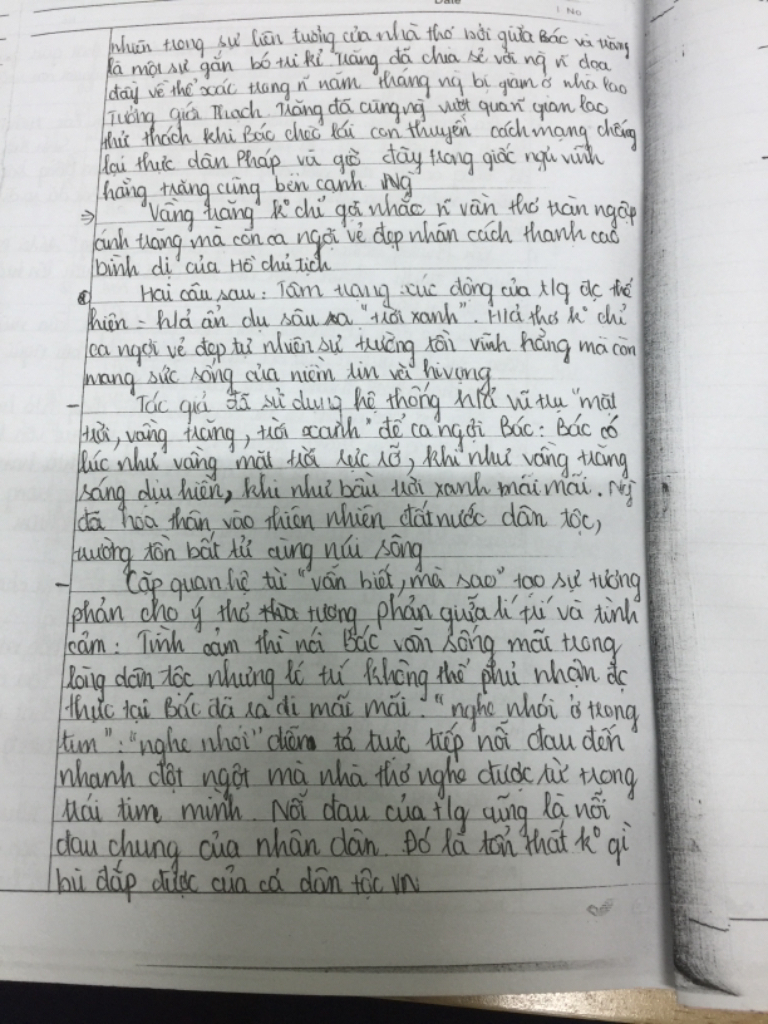 Date
No
nhiên trong sự liên tưởng của nhà thơ bởi giữa Bác và trăng
là một sự gắn bó tri kỉ trăng đã chia sẻ với ng̃ n̄ đọa
đầy về thể xác trong n̄ năm tháng ng̃ bị giam ở nhà lao
Tưởng giới Thạch. Trăng đã cùng ng̃ vượt qua n̄ gian lao
thử thách khi Bác chèo lái con thuyền cách mạng chống
lại thực dân Pháp và giờ đây trong giấc ngủ vĩnh
hằng trăng cũng bên cạnh Ng̃
=> Vầng trăng k° chỉ gợi nhắc n̄ vần thơ tràn ngập
ánh trăng mà còn ca ngợi vẻ đẹp nhân cách thanh cao
bình dị của Hồ chủ tịch
Hai câu sau: Tâm trạng xúc động của t/g đc thể
hiện = h/ả ẩn dụ sâu xa "trời xanh". H/ả thơ k° chỉ
ca ngợi vẻ đẹp tự nhiên sự trường tồn vĩnh hằng mà còn
mang sức sống của niềm tin và hi vọng
- Tác giả đã sử dụng hệ thống h/ả vũ trụ "mặt
trời, vầng trăng, trời xanh" để ca ngợi Bác: Bác có
lúc như vầng mặt trời rực rỡ, khi như vầng trăng
sáng dịu hiền, khi như bầu trời xanh mãi mãi. Ng̃
đã hóa thân vào thiên nhiên đất nước dân tộc,
trường tồn bất tử cùng núi sông
- Cặp quan hệ từ "vẫn biết, mà sao" tạo sự tương
phản cho ý thơ tương phản giữa lí trí và tình
cảm: Tình cảm thì nói Bác vẫn sống mãi trong
lòng dân tộc nhưng lí trí không thể phủ nhận đc
thực tại Bác đã ra đi mãi mãi. "nghe nhói ở trong
tim": "nghe nhói" diễn tả trực tiếp nỗi đau đến
nhanh đột ngột mà nhà thơ nghe được từ trong
trái tim mình. Nỗi đau của t/g cũng là nỗi
đau chung của nhân dân. Đó là tổn thất k° gì
bù đắp được của cả dân tộc VN